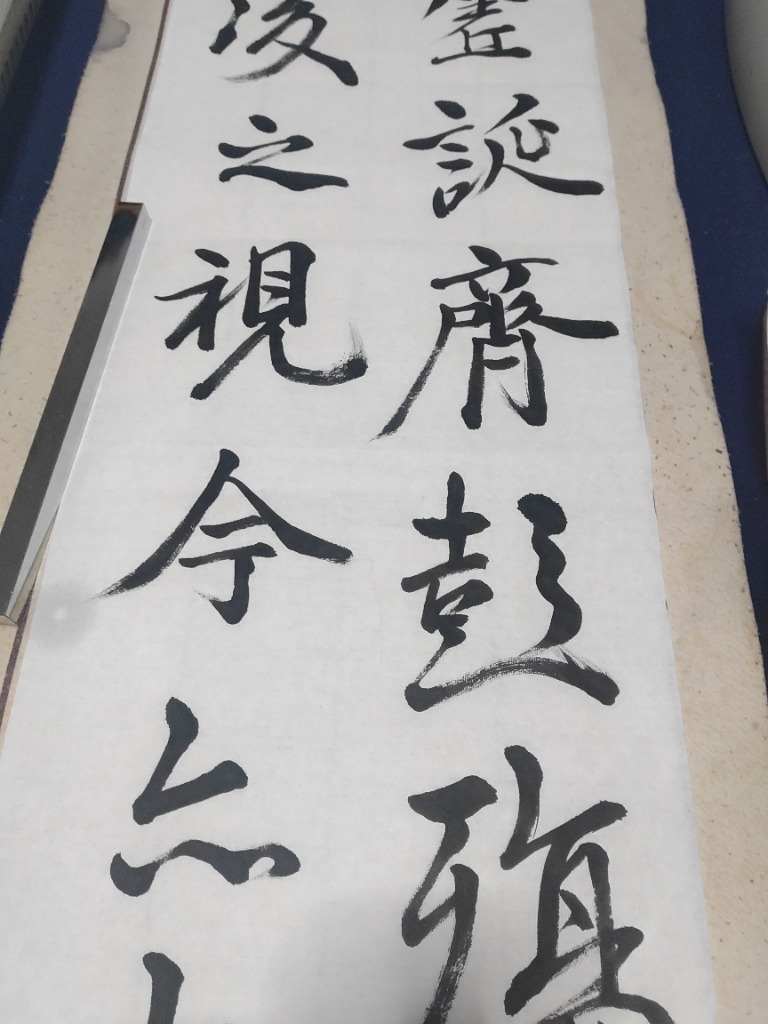 虛誕齊彭殤
後之視今亦